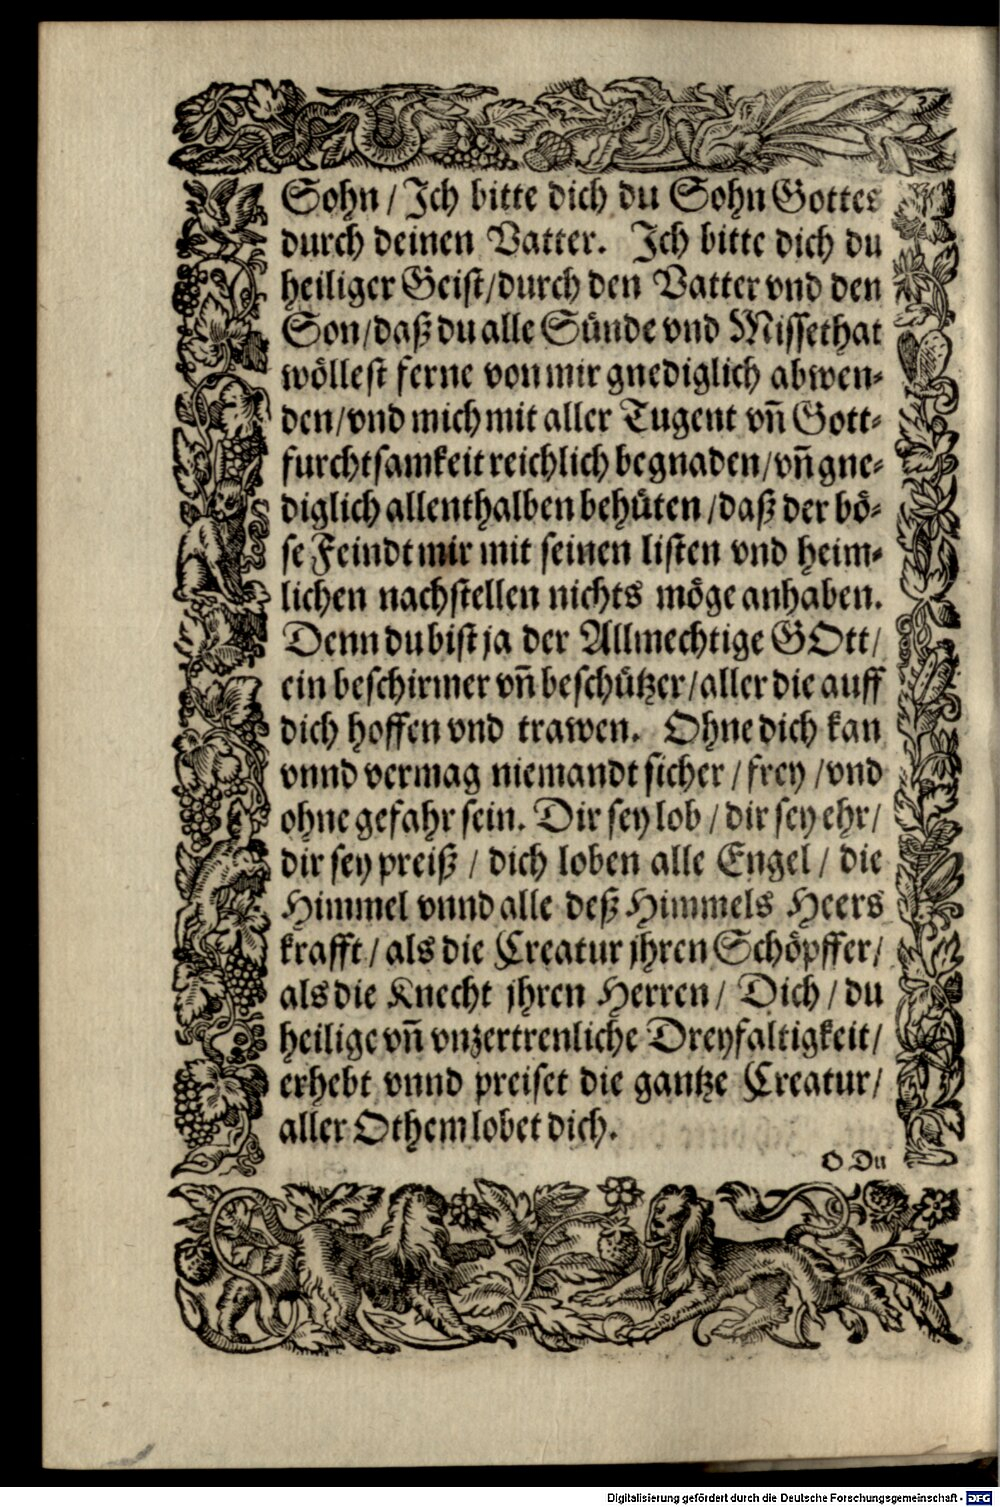 Sohn / Ich bitte dich du Sohn Gottes
durch deinen Vatter. Ich bitte dich du
heiliger Geist/durch den Vatter vnd den
Son/daß du alle Sünde vnd Missethat
wöllest ferne von mir gnediglich abwen-
den/vnd mich mit aller Tugent vñ Gott-
furchtsamkeit reichlich begnaden/vñ gne-
diglich allenthalben behüten/daß der bö-
se Feindt mir mit seinen listen vnd heim-
lichen nachstellen nichts möge anhaben.
Denn du bist ja der Allmechtige GOtt/
ein beschirmer vñ beschützer/aller die auff
dich hoffen vnd trawen. Ohne dich kan
vnnd vermag niemandt sicher / frey / vnd
ohne gefahr sein. Dir sey lob / dir sey ehr/
dir sey preiß / dich loben alle Engel / die
Himmel vnnd alle deß Himmels Heers
krafft / als die Creatur jhren Schöpffer/
als die Knecht jhren Herren / Dich / du
heilige vñ vnzertrenliche Dreyfaltigkeit/
erhebt vnnd preiset die gantze Creatur/
aller Othem lobet dich.
O Du
Digitalisierung gefördert durch die Deutsche Forschungsgemeinschaft - DFG